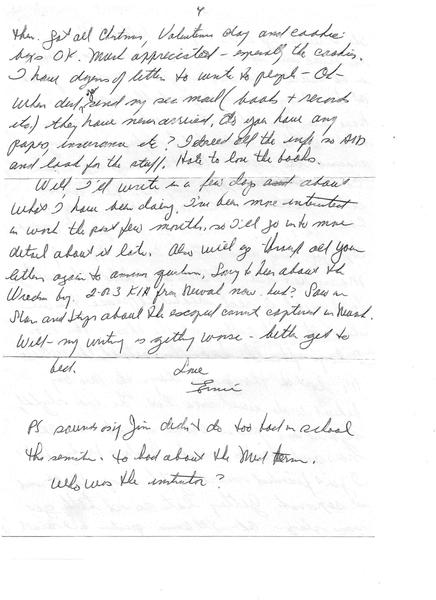 4
then. Got all Christmas, Valentines day and cookie
boxs OK. Much appreciated - especially the cookies.
I have dozens of letters to write to people - Oh -
When did you send my sea mail (books + records
etc) they have never arrived, do you have any
papers, insurance etc? I need all the info so
and look for the stuff. Hate to lose the books.
Well I'll write in a few days about
what I have been doing. I've been more interested
in work the past few months, so I'll go into more
detail about it later. Also will go through all your
letters again to answer questions. Sorry to hear about the
boy. 2 or 3 KIA from now. bad? Saw in
Stars and Stripes about the escaped convict captured in
Well - my writing is getting worse - better get to
bed. Love
Ernie
PS sounds Jim didn't do too bad in school
this semester. to bad about the term.
Who was the instructor?